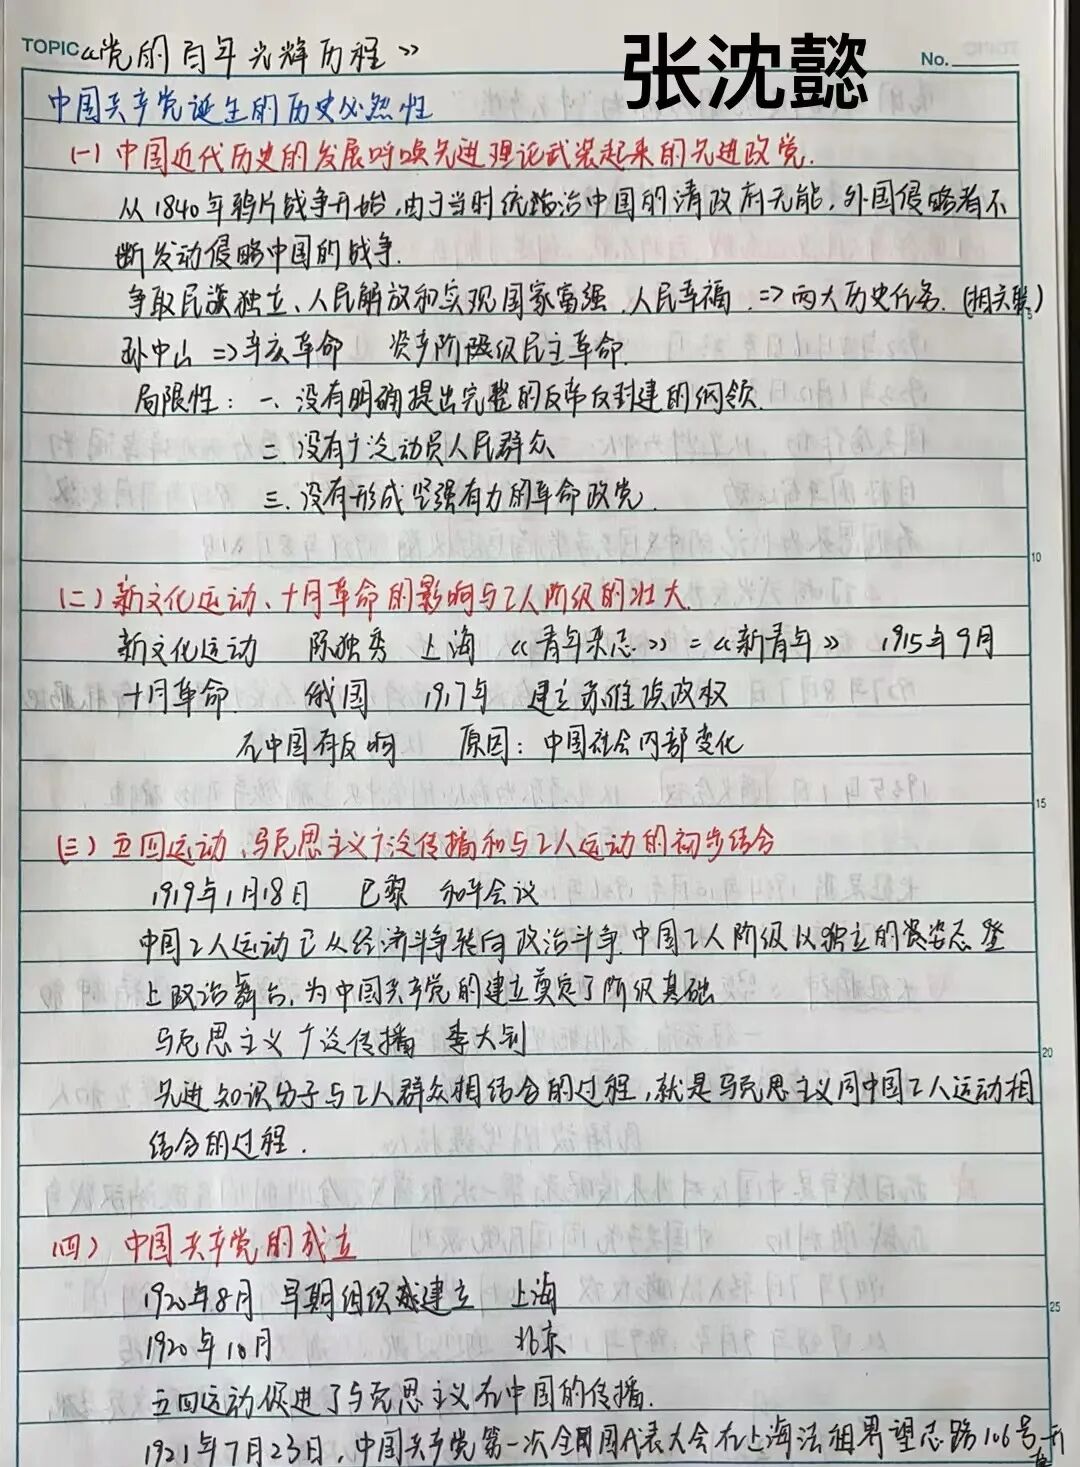 TOPIC 《党的百年光辉历程》
张沈懿
No.
中国共产党诞生的历史必然性
(一) 中国近代历史的发展呼唤先进理论武装起来的先进政党.
从1840年鸦片战争开始,由于当时统治中国的清政府无能,外国侵略者不
断发动侵略中国的战争.
争取民族独立、人民解放和实现国家富强、人民幸福. => 两大历史任务. (相关联)
5
孙中山 => 辛亥革命 资产阶级民主革命.
局限性: 一、没有明确提出完整的反帝反封建的纲领.
二、没有广泛动员人民群众
三、没有形成坚强有力的革命政党.
10
(二) 新文化运动、十月革命的影响与工人阶级的壮大.
新文化运动 陈独秀 上海 《青年杂志》=《新青年》 1915年9月
十月革命. 俄国 1917年 建立苏维埃政权
在中国有反响 原因: 中国社会内部变化
15
(三) 五四运动、马克思主义广泛传播和与工人运动的初步结合
1919年1月18日 巴黎 和平会议
中国工人运动已从经济斗争转向政治斗争.中国工人阶级以独立的姿态登
上政治舞台,为中国共产党的建立奠定了阶级基础
马克思主义广泛传播 李大钊
20
先进知识分子与工人群众相结合的过程,就是马克思主义同中国工人运动相
结合的过程.
(四) 中国共产党的成立
1920年8月 早期组织建立 上海
25
1920年10月 北京
五四运动促进了马克思主义在中国的传播.
1921年7月23日,中国共产党第一次全国代表大会在上海法租界望志路106号开